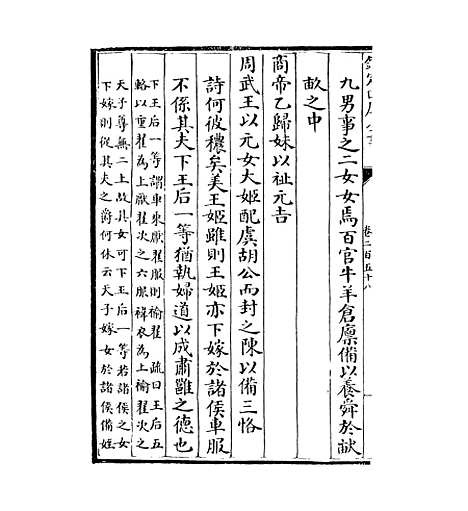 欽定四庫全書
卷二百五十八
九男事之二女女焉百官牛羊倉廪備以養舜於畎
畝之中
商帝乙歸妹以祉元吉
周武王以元女大姬配虞胡公而封之陳以備三恪
詩何彼穠矣美王姬雖則王姬亦下嫁於諸侯車服
不係其夫下王后一等猶執婦道以成肅雝之德也
下王后一等謂車乘厭翟服則褕翟 疏曰王后五
輅以重翟為上厭翟次之六服褘衣為上褕翟次之
天子尊無二上故其女可下王后一等若諸侯之女
下嫁則從其夫之爵何休云天子嫁女於諸侯備姪